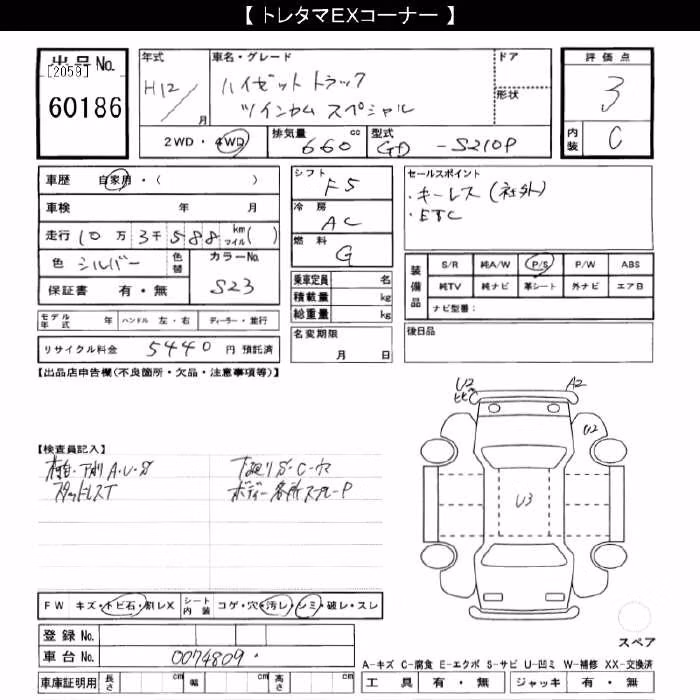 【 トレタマEXコーナー 】
出品No.
[2059]
60186
年式
H12/
月
車名・グレード
ハイゼット トラック
ツインカム スペシャル
ドア
形状
2WD・4WD
排気量
660 cc
型式
GD -S210P
評価点
3
内装
C
車歴 自家用・( )
車検 年 月
走行 10万3千588 km マイル( )
色 シルバー
色替
カラーNo.
S23
保証書 有・無
モデル年式 年 ハンドル 左・右 ディーラー・並行
リサイクル料金 5440 円 預託済
シフト
F5
冷房
AC
燃料
G
乗車定員 名
積載量 kg
総重量 kg
名変期限
月 日
セールスポイント
・キーレス(社外)
・ETC
装備品
S/R 純A/W P/S P/W ABS
純TV 純ナビ 革シート 外ナビ エアB
ナビ型番：
後日品
【出品店申告欄(不良箇所・欠品・注意事項等)】
【検査員記入】
下廻りS・C・ウマ
スタッドレスT
ボディー各所スプレーP
U2
A2
U2
U3
FW キズ・トビ石・割レX
シート内装 コゲ・穴・汚レ・シミ・破レ・スレ
登録No.
車台No. 0074809
車庫証明用 長さ cm 幅 cm 高さ cm
スペア
A-キズ C-腐食 E-エクボ S-サビ U-凹ミ W-補修 XX-交換済
工具 有・無 ジャッキ 有・無